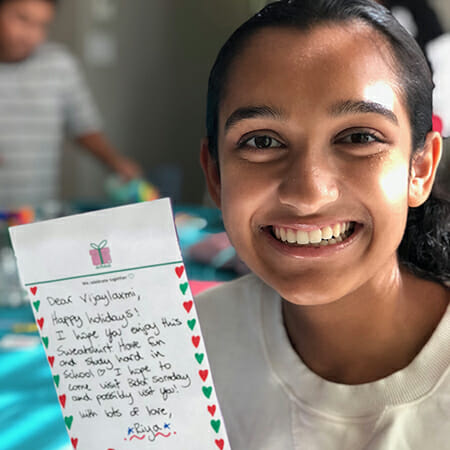 We celebrate together ♡
Dear Vijaylaxmi,
Happy holidays!
I hope you enjoy this
Sweatshirt. Have fun
and study hard in
school ♡ I hope to
come visit someday
and possibly visit you!
with lots of love,
★Riya★